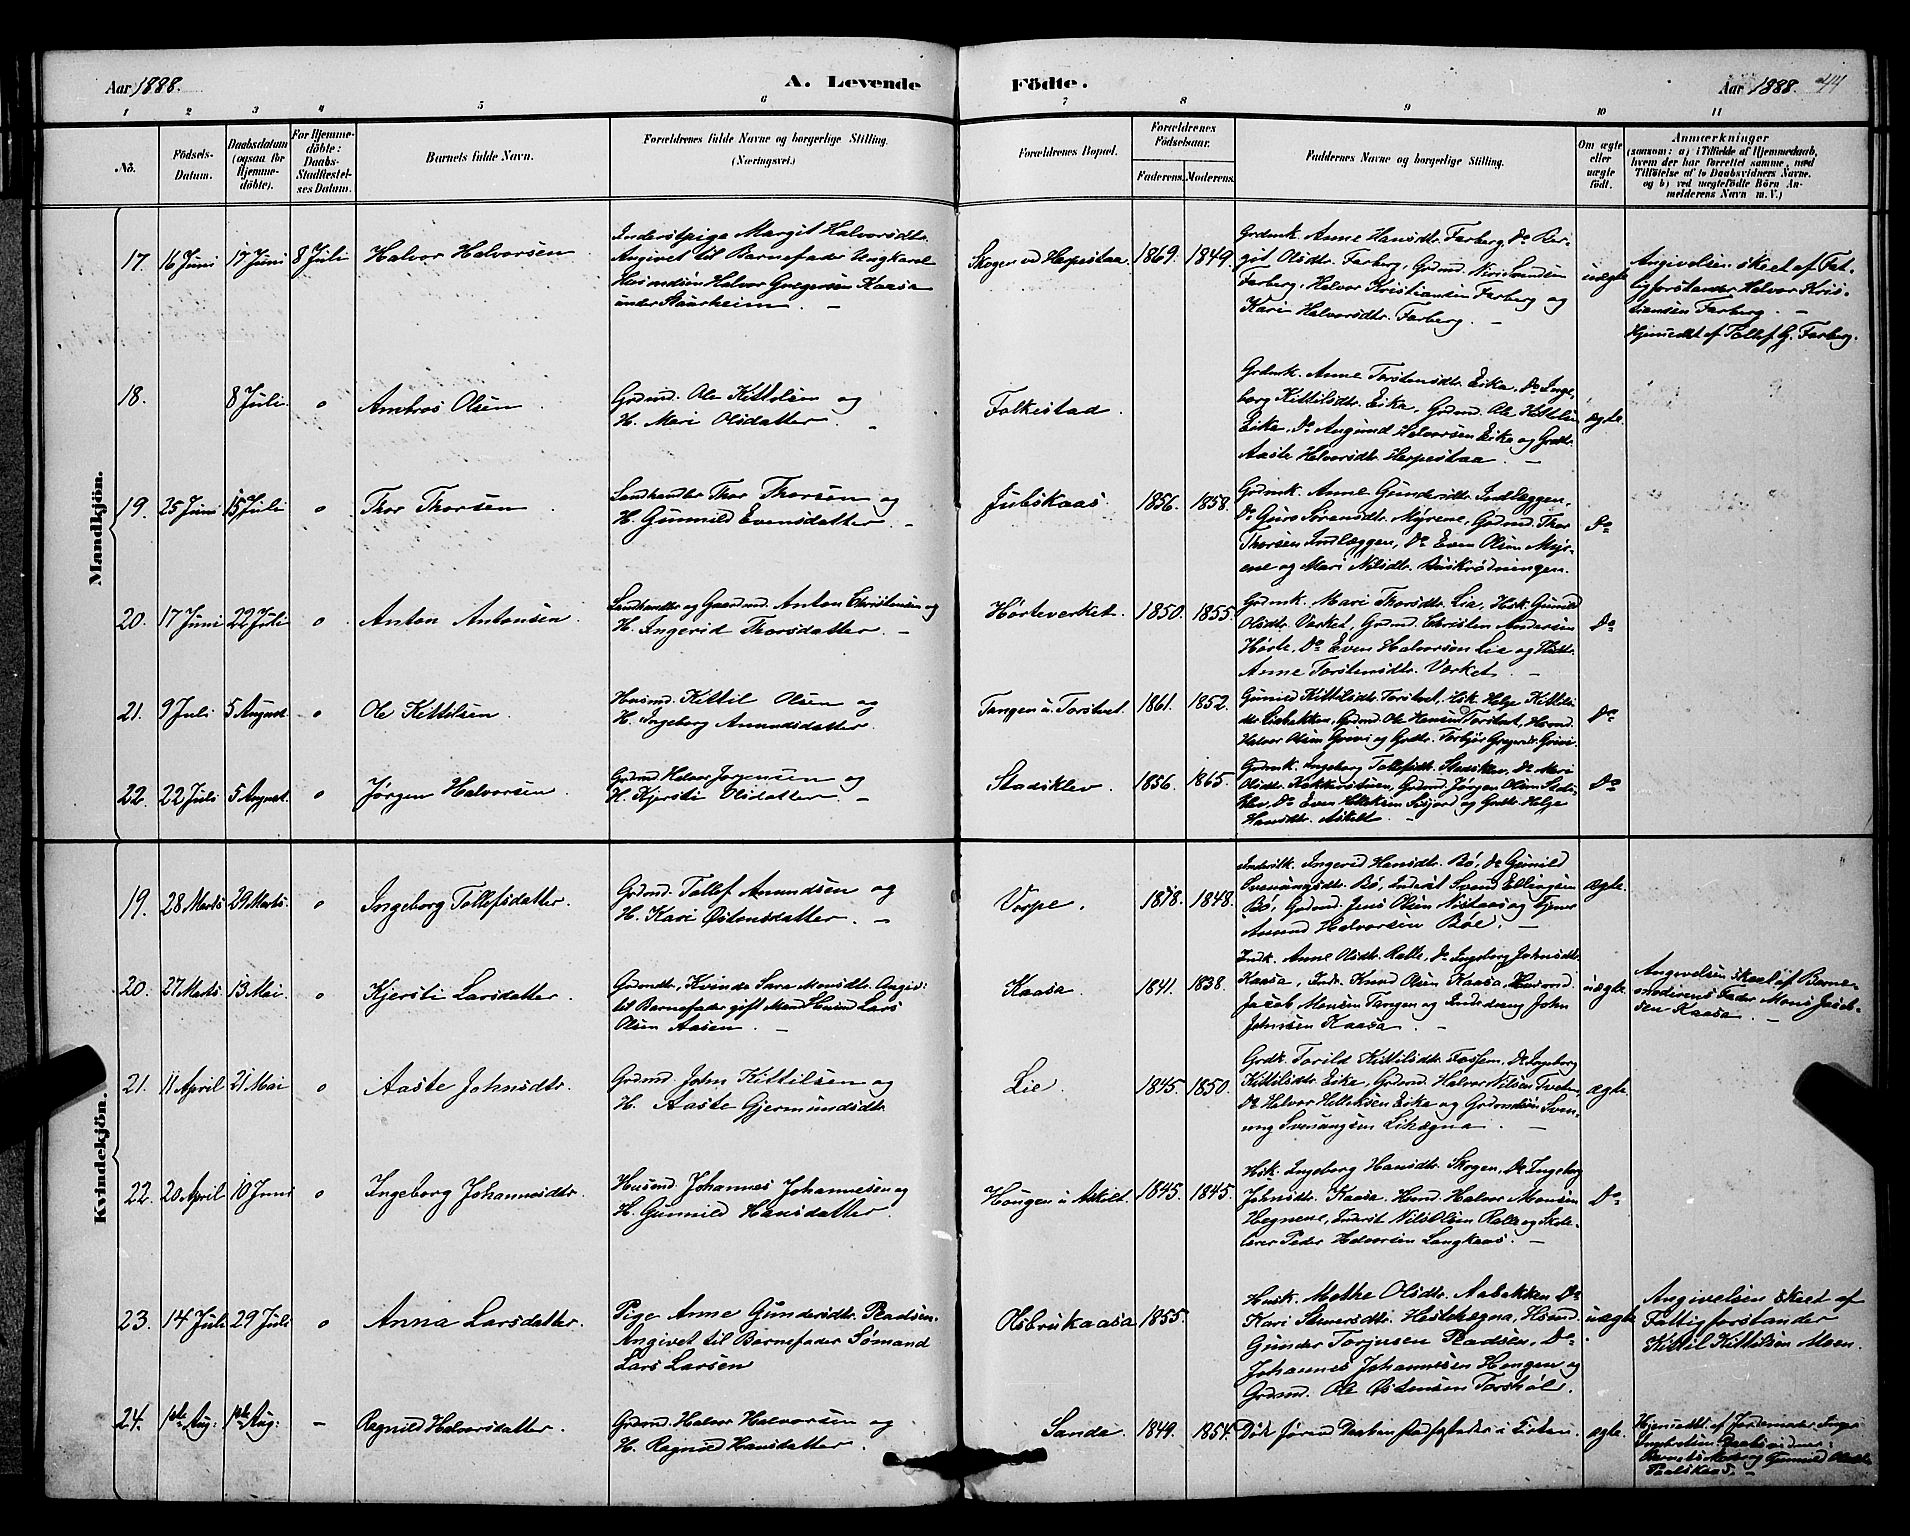 Aar 1888.
A. Levende
Födte.
Aar 1888. 44
1 2 3 4 5 6 7 8 9 10 11
No.
Födsels-
Datum.
Daabsdatum
(ogsaa for
Hjemme-
döbte).
For Hjemme-
döbte:
Daabs-
Stadfæstel-
ses Datum.
Barnets fulde Navn.
Forældrenes fulde Navne og borgerlige Stilling.
(Næringsvei.)
Forældrenes Bopæl.
Forældrenes
Födselsaar.
Faderens. Moderens.
Faddernes Navne og borgerlige Stilling.
Om ægte
eller
uægte
födt.
Anmærkninger
(saasom: a) i Tilfælde af Hjemmedaab,
hvem der har forrettet samme, med
Tilföielse af to Daabsvidners Navne,
og b) ved uægtefödte Börn An-
melderens Navn m. V.)
Mandkjön.
17. 16 Juni 17 Juni 8 Juli Halvor Halvorsen
Inderstpige Margit Halvorsdtr.
Angivet til Barnefader Ungkarl
Husmdsön Halvor Gregersen Kaasa
under Staurheim. —
Skogen ved Herpestaa. 1869. 1849.
Grdmk. Anne Hansdtr. Farberg, Do
git Olsdtr. Farberg, Grdmd.
Farberg, Halvor Kristiansen Farberg og
Kari Halvorsdtr. Farberg. —
uægte
Angivelsen skeet af Fat-
tigforstander Halvor Kris-
tiansen Farberg. —
Hjemedöbt af Tollef G. Farberg.
18. 8 Juli. o Ambros Olsen
Grdmd. Ole Kittilsen og
H. Mari Olsdatter. —
Folkestad.
Grdmk. Anne Torstensdtr. Eika, Do Inge-
borg Kittilsdtr. Eika, Grdmd. Ole Kittilsen
Eika, Do Aasmund Halvorsen Eika og Grdtr.
Aaste Halvorsdtr. Herpestaa. —
ægte.
19. 25 Juni 15 Juli o Thor Thorsen
Landhandler Thor Thorsen og
H. Gunnild Evensdatter. —
Jubskaas. 1856. 1858.
Grdmk. Anne Gundersdtr. Indlæggen,
Do Guro Sørensdtr. Myrene, Grdmd. Thor
Thorsen Indlæggen, Do Even Olsen Myr-
ene og Mari Nilsdtr.
Do
20. 17 Juni 22 Juli o Anton Antonsen
Landhandler og Gaardmd. Anton Christensen og
H. Ingerid Thorsdatter. —
Hörteverket. 1850. 1855.
Grdmk. Mari Thorsdtr. Lia, Hsk. Gunild
Olsdtr. Verket, Grdmd. Christen Andersen
Hörte, Do Even Halvorsen Lia og
Anne Torstensdtr. Værket. —
Do
21. 9 Juli 5 August. o Ole Kittilsen.
Husmd. Kittil Olsen og
H. Ingeborg Amundsdatter.
Tangen u. Torstvet. 1861. 1852.
Gunild Kittilsdtr. Torstvet, Hsk. Helge Kittils-
dtr. Lisbekken, Grdmd. Ole Hansen Torstvet, Husmd.
Halvor Olsen Grivi og Grdtr. Torbjör Gregersdtr. Grivi.
Do
22. 22 Juli 5 August. o Jörgen Halvorsen.
Grdmd. Halvor Jörgensen og
H. Kjersti Olsdatter. —
Stadsklev. 1856. 1865.
Grdmk. Ingeborg Tollefsdtr. Stadsklev, Do Mari
Olsdtr. Grdmd. Jörgen Olsen Stads-
klev, Do Even og Grdtr. Helge
Hansdtr. Askilt. —
Do
Kvindekjön.
19. 28 Marts 29 Marts. o Ingeborg Tollefsdatter.
Grdmd. Tollef Amundsen og
H. Kari Östensdatter. —
Vorpe. 1848. 1848.
Inderstk. Ingerid Hansdtr. Bö, Do Gunild
Svenungsdtr. Bö, Inderst Svend Ellingsen
Bö, Grdmd. Jens Olsen og Tjener
Amund Halvorsen Böe. —
ægte.
20. 27 Marts 13 Mai. o Kjersti Larsdatter.
Grdmdtr., Kvinde Sara Monsdtr. Angiv:
til Barnefader gift Mand Husmd Lars
Olsen Aasen. —
Kaasa. 1841. 1838.
Indk. Anne Olsdtr. Ralle, Do Ingeborg Johnsdtr.
Kaasa, Indr. Knud Olsen Kaasa, Husmd.
Jacob Monsen Tangen og Inderdreng John
Johnsen Kaasa. —
uægte.
Angivelsen skeet af Barne-
moderens Fader Mons Jacob-
sen Kaasa. —
21. 11 April 21 Mai o Aaste Johnsdtr.
Grdmd. John Kittilsen og
H. Aaste Gjermundsdtr.
Lie. 1845. 1850.
Grdk. Torild Kittilsdtr. Fossem, Do Ingeborg
Kittilsdtr. Eika, Grdmd. Halvor Nilsen Tveten,
Do Halvor Helleksen Eika og Grdmdsön Sven-
ung Svenungsen Lihægna. —
ægte.
22. 20 April 10 Juni o Ingeborg Johannesdtr.
Husmd. Johannes Johannesen og
H. Gunnild Hansdatter.
Hougen u. Askilt. 1845. 1845.
Hsk. Ingeborg Hansdtr. Skogen, Do Ingeborg
Johnsdtr. Kaasa, Husmd. Halvor Monsen
Hegnene, Inderst Nils Olsen Ralle og Skole-
lærer Peder Halvorsen Langkaas. —
Do
23. 14 Juli 29 Juli o Anna Larsdatter.
Pige Anne Gundersdtr. Pladsen.
Angivet til Barnefader Sømand
Lars Larsen
Olsbrukaasa 1855.
Husk. Mothe Olsdtr. Aabekken Do
Kari Steversdtr. Hestehegna, Husmd.
Gunder Torjusen Pladsen, Do
Johannes Johannesen Hougen og
Grdmd. Ole Östensen Torshol.
uægte.
Angivelsen skeet af
Fattigforstander
Kittil Kittilsen Moen.
24. 1ste Aug: 1ste Aug: — Ragnild Halvorsdatter.
Grdmd. Halvor Halvorsen og
H. Ragnild Hansdatter.
Sanda. 1849. 1854.
Döde förend Daaben stadfæstedes i Kirken.
ægte.
Hjemdöbt af Jordemoder
Daabsvidner:
Barnets Moder og Gunild